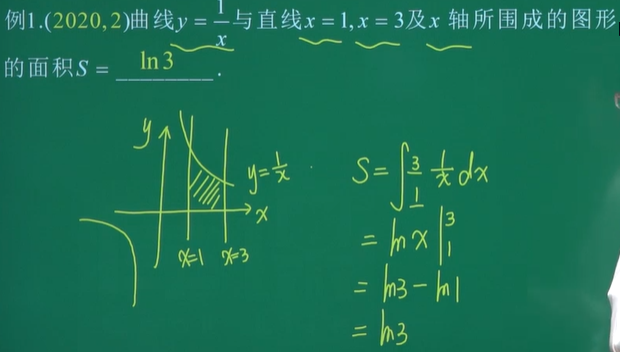 例1.(2020,2)曲线y = 1/x 与直线x = 1, x = 3及x 轴所围成的图形
的面积S = ln 3 .
y
y = 1/x
x
x=1 x=3
S = ∫₁³ 1/x dx
= ln x |₁³
= ln3 − ln1
= ln3